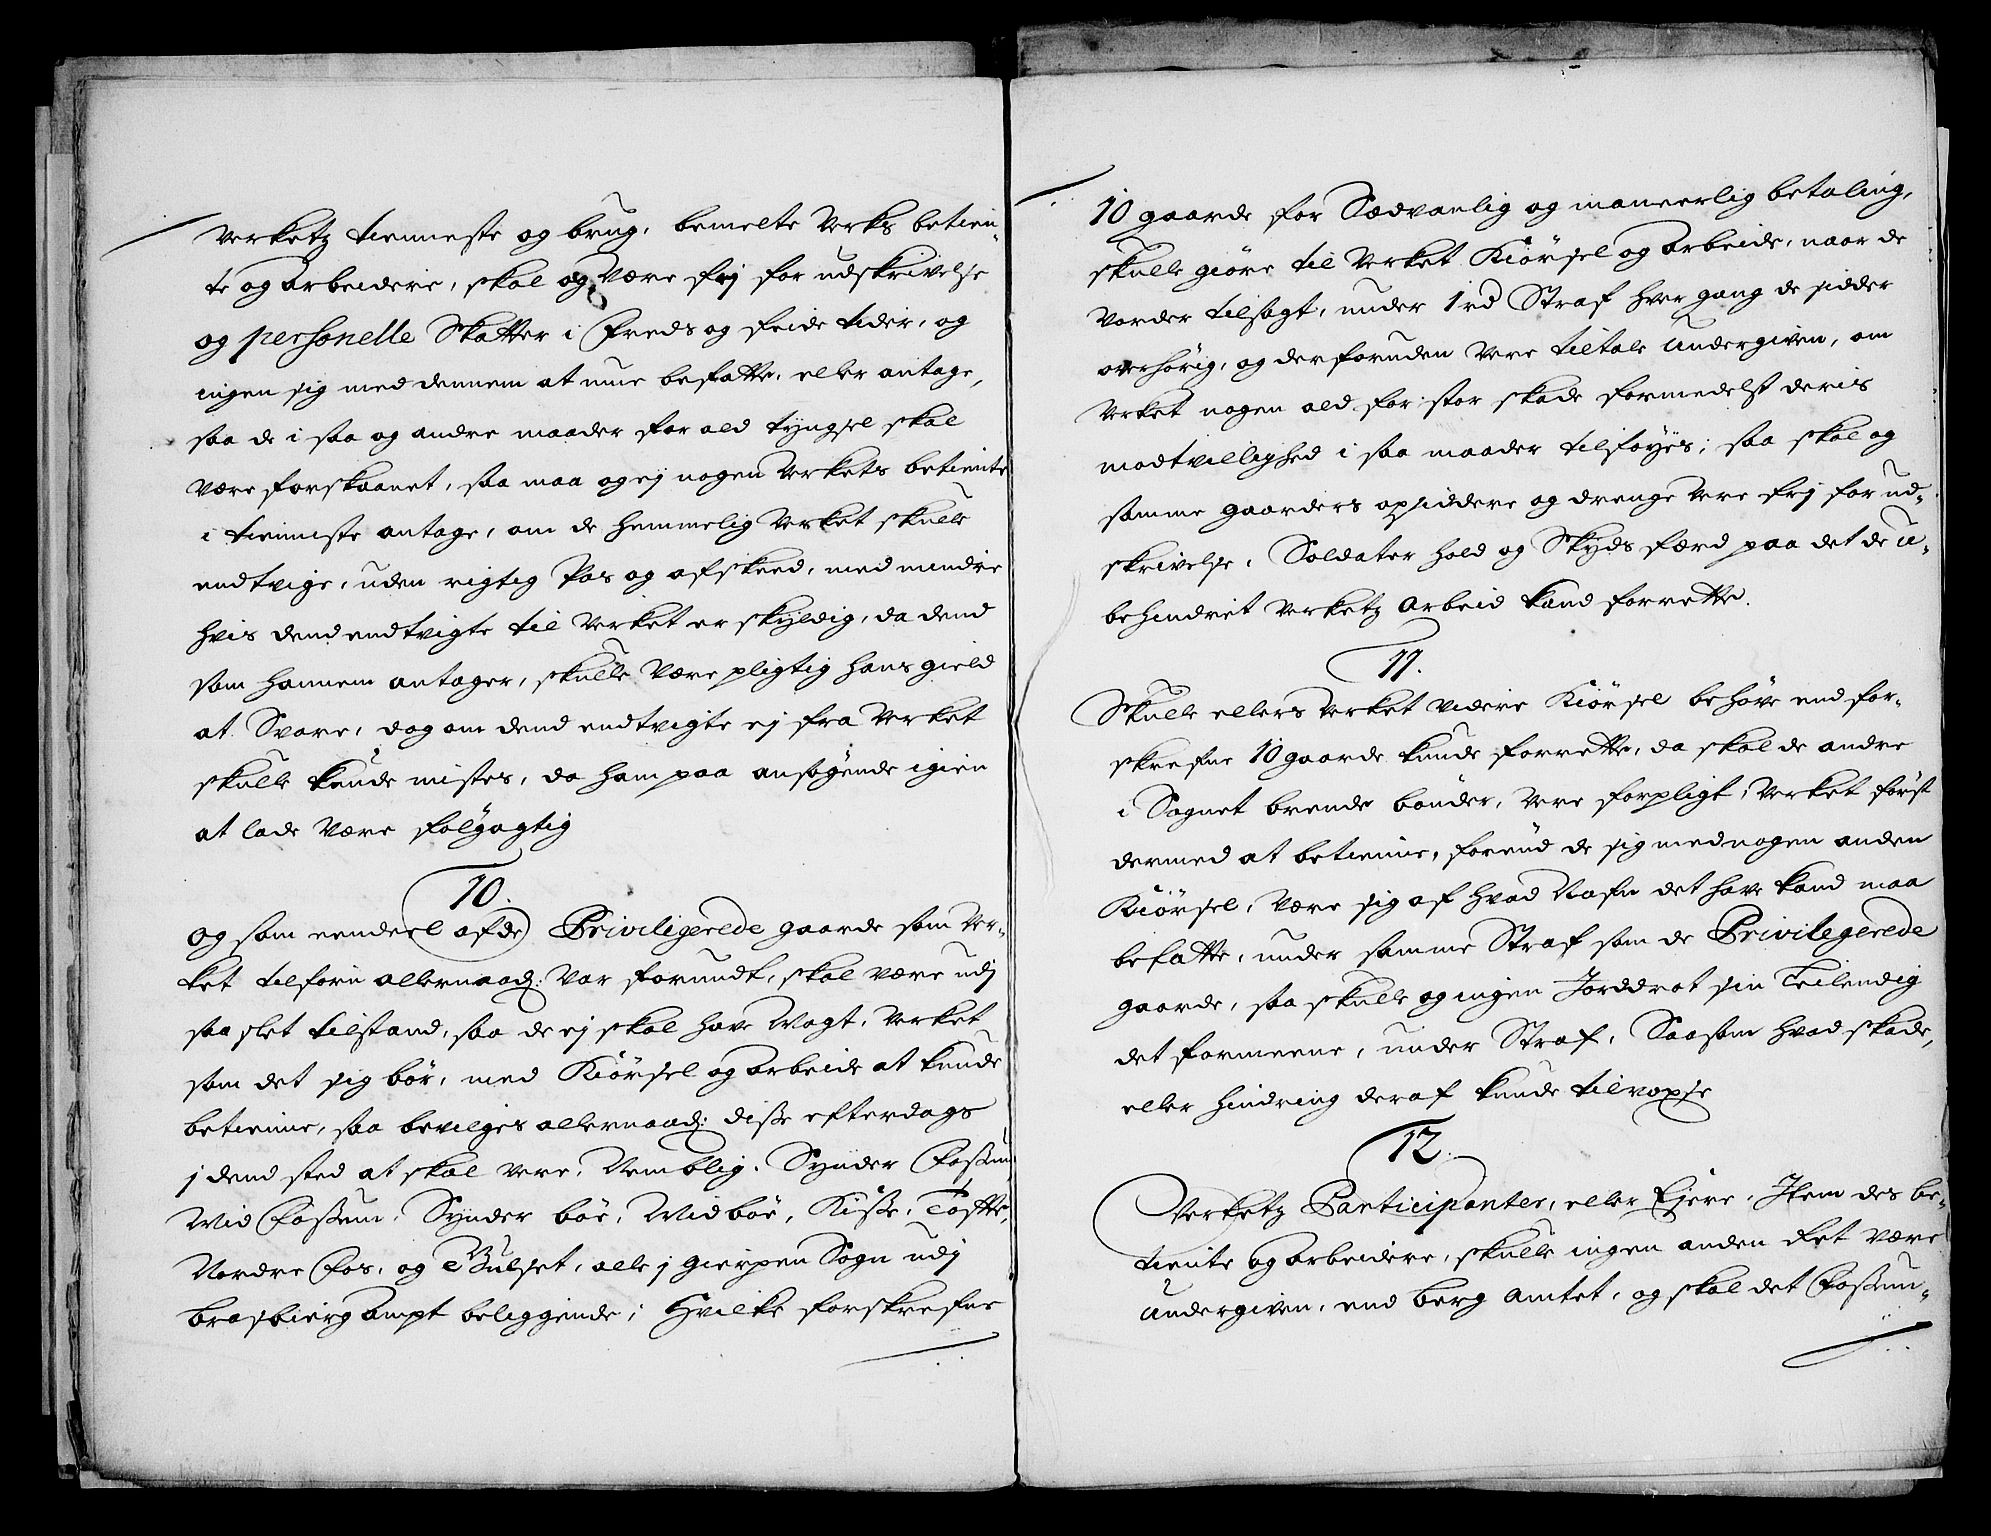 Verketz tienneste og brug, bemelte Verks betien-
te og arbeidere, skal og være frj for udskrivelse
og personelle Skatter i Freds og feide tider, og
ingen sig med dennem at mue befatte, eller antage,
saa de i saa og andre maader for ald tyngsel skal
være forskaanet, saa maa og ej nogen Verkets betiente
i tienniste antage, om de hemmelig Verket skulle
endtvige, uden rigtig Pas og afskeed, med mindre
hvis dend endtvigte til Verket er skyldig, da dend
som hannem antager, skulle være pligtig hans gield
at Svare, dog om dend endtvigte ej fra Verket
skulle kunde mistes, da ham paa ansøgende igien
at lade være følgagtig
10.
og som eendeel af de Priviligerede gaarde som Ver-
ket tilforn allernaad: var forundt, skal være udj
saa slet tilstand, saa de ej skal have Magt, Verket
som det sig bør, med Kiørsel og arbeide at kunde
betienne, saa bevilges allernaad: disse efterdags
j dend sted at skal vere, Nemblig. Synder Fossum
Mid Fossum, Synder böe, Midböe, Kisse, Tofte,
Nordre Fos, og Bulset, alle j gierpen Sogn udj
brasbierg ampt beliggende; Hvilke forskrefne
10 gaarde for Sædvanlig og maneerlig betaling,
skulle giøre til Verket Kiørsel og arbeide, naar de
vorder tilsagt, under 1 rd Straf hver gang de sidder
overhørig, og derforuden vere tiltale undergiven, om
Verket nogen ald for stor skade formedelst deris
modtvillighed i saa maader tilføyes; saa skal og
samme gaarders opsiddere og drenge vere frj for ud-
skrivelse, Soldater hold og Skyds færd paa det de u-
behindret Verketz arbeid kand forrette.
11.
Skulle ellers Verket videre Kiørsel behøve end for-
skrefne 10 gaarde kunde forrette, da skal de andre
i Sognet boende bønder, vere forpligt, Verket først
dermed at betienne, forend de sig med nogen anden
Kiørsel, være sig af hvad Nafn det have kand maa
befatte, under samme Straf som de Privilegerede
gaarde, saa skulle og ingen Jorddrot sin Leilending
det formeene, under Straf, Saasom hvad skade,
eller hindring deraf kunde tilvoxse
12.
Verketz Participanter, eller Ejere, Item des be-
tiente og arbeidere, skulle ingen anden Ret være
undergiven, end berg amtet, og skal det Fossum-